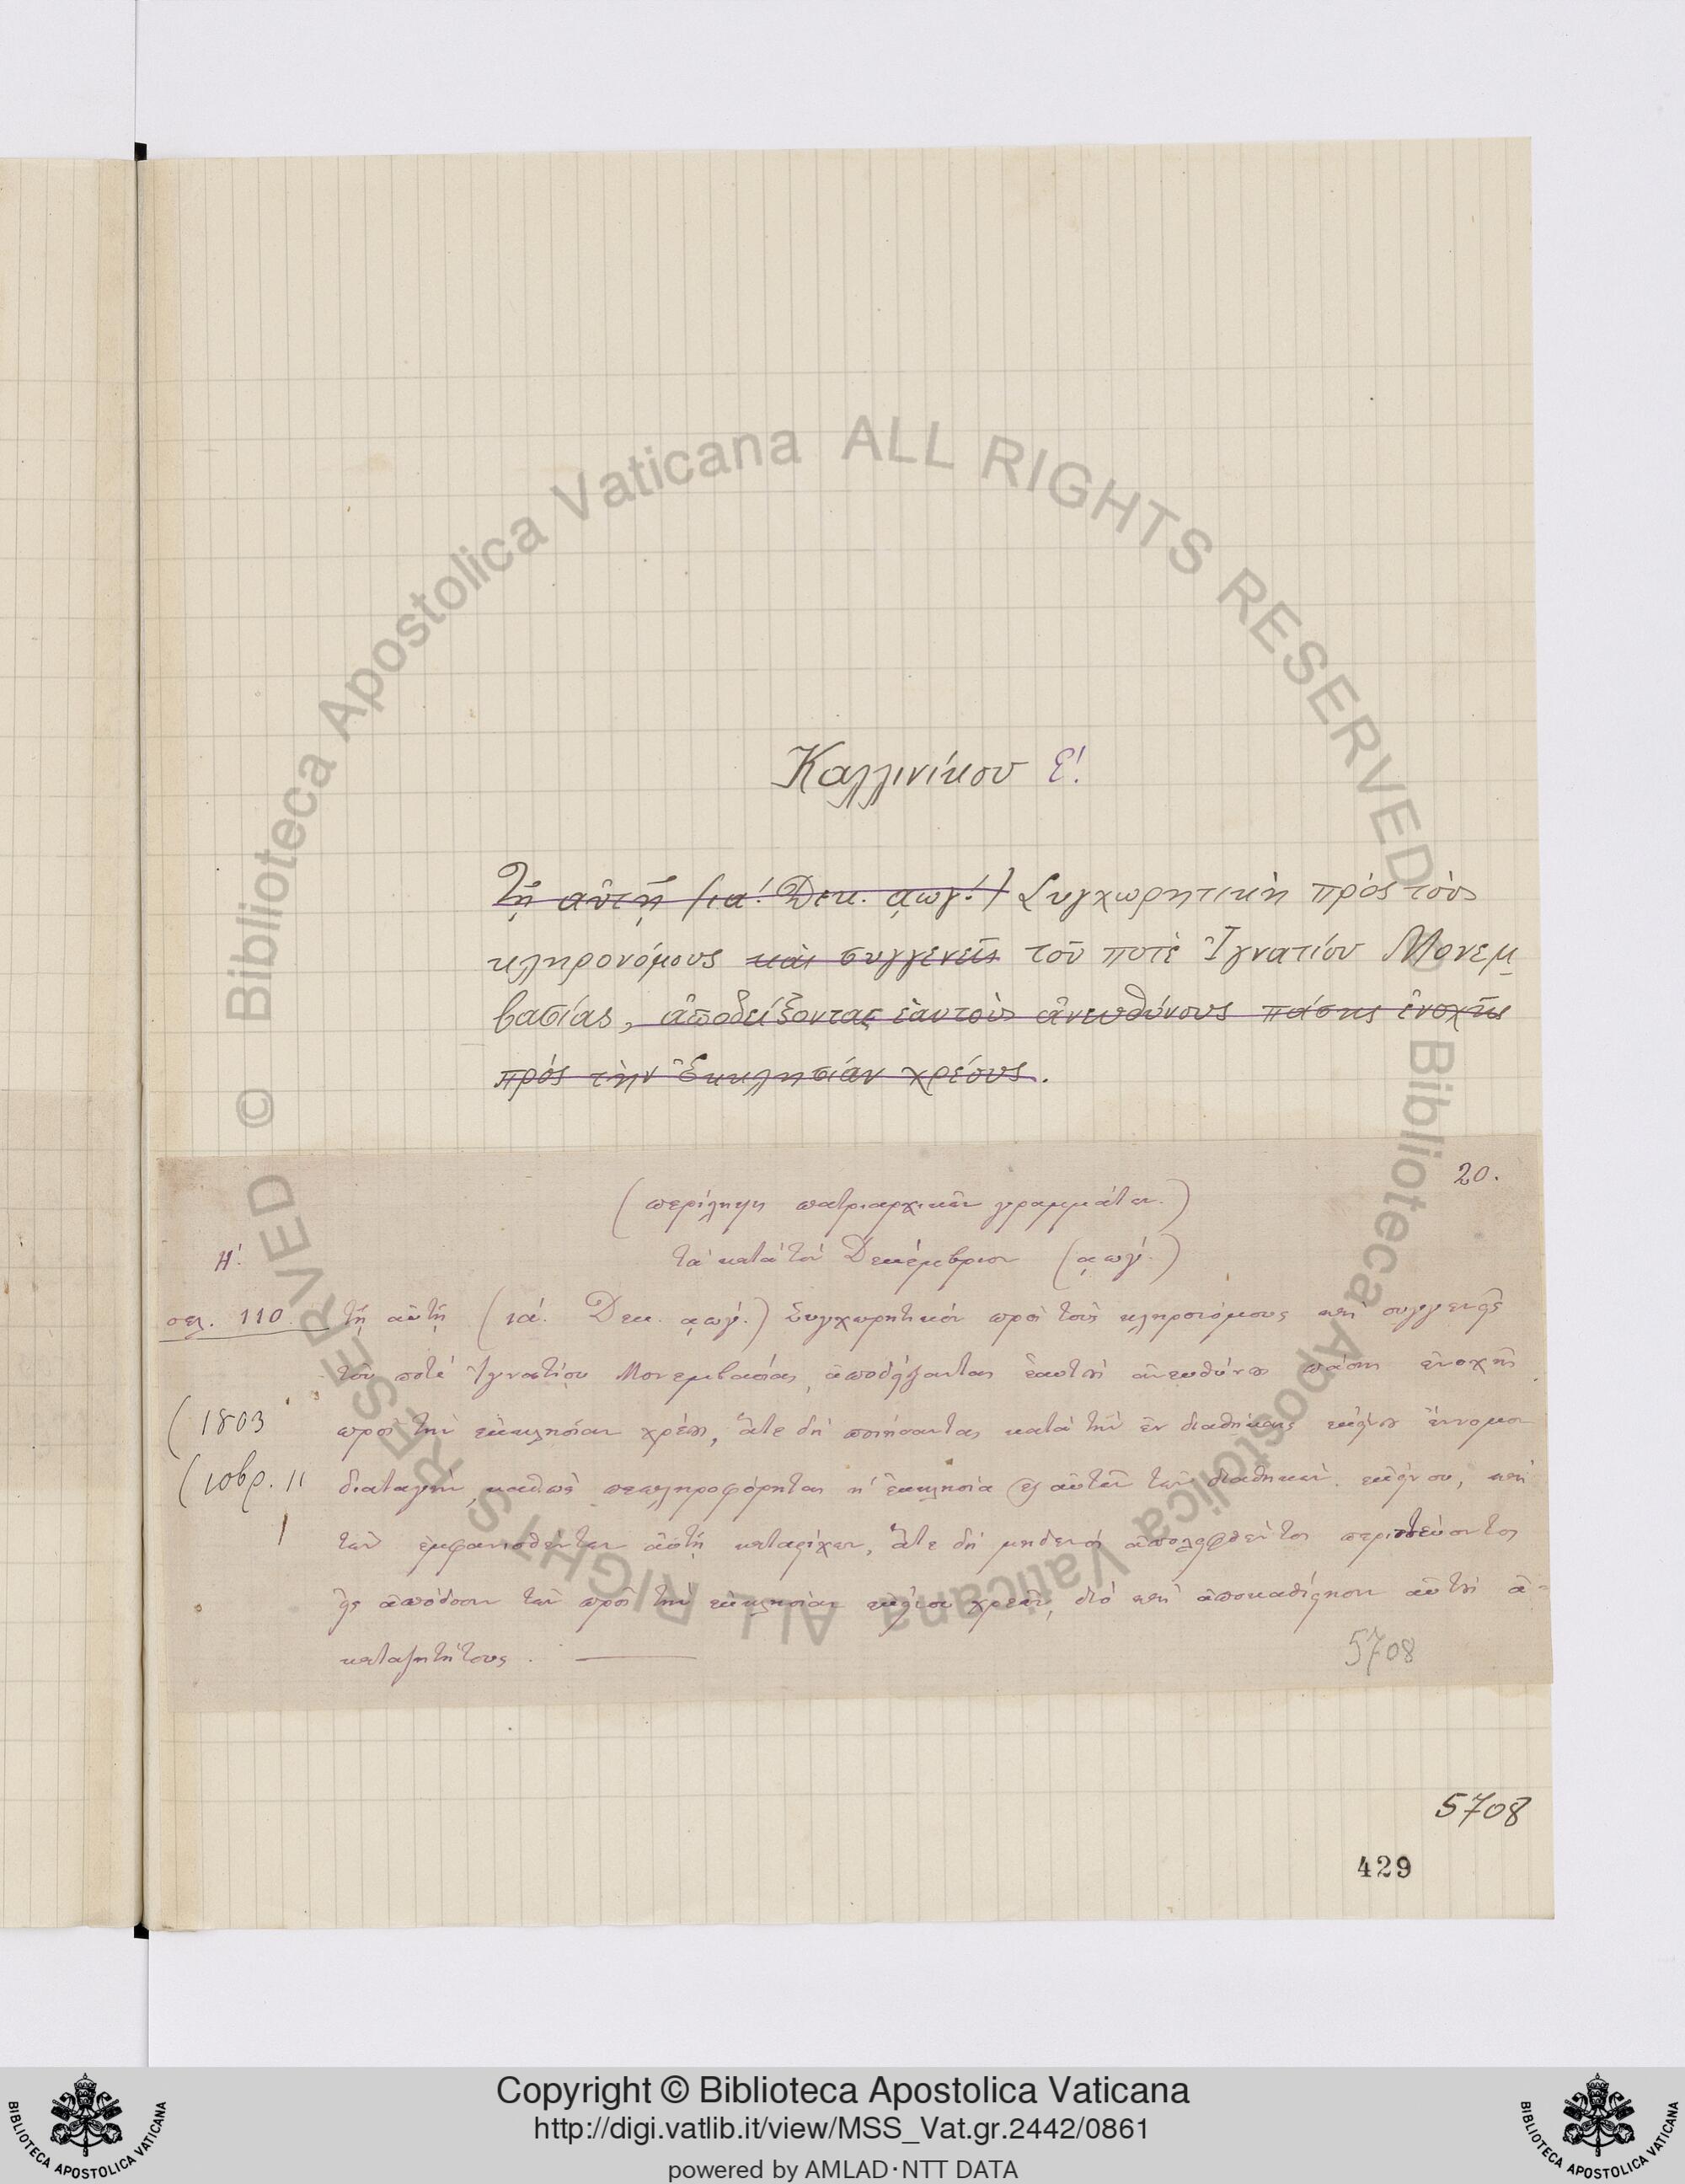 Καλλινίκου Ε!
Τῇ αὐτῇ (ια! Δεκ. ͵αωγ!) Συγχωρητικὴ πρὸς τοὺς
κληρονόμους καὶ συγγενεῖς τοῦ ποτὲ Ἰγνατίου Μονεμ
βασίας, ἀποδείξοντας ἑαυτοὺς ἀνευθύνους πάσης ἐνοχῆς
πρὸς τὴν Ἐκκλησίαν χρέους.
20.
(περίληψη πατριαρχικῶν γραμμάτων.)
Η΄. τὰ κατὰ τὸν Δεκέμβριον (͵αωγ΄.)
σελ. 110. τῇ αὐτῇ (ιά. Δεκ. ͵αωγ΄.) Συγχωρητικὸν πρὸς τοὺς κληρονόμους καὶ συγγενεῖς
τοῦ ποτὲ Ἰγνατίου Μονεμβασίας, ἀποδείξαντας ἑαυτοὺς ἀνευθύνους πάσης ἐνοχῆς
(1803 πρὸς τὴν ἐκκλησίαν χρέους, ἅτε δὴ ποιήσαντας κατὰ τὴν ἐν διαθήκαις ἐκείνου ἔννομον
(10βρ. 11 διαταγὴν, καθὼς πεπληροφόρηται ἡ ἐκκλησία ἐξ αὐτῶν τῶν διαθηκῶν ἐκείνου, καὶ
τῶν ἐμφανισθέντων αὐτῇ καταστίχων, ἅτε δὴ μηδενὸς ἀπολειφθέντος περιττεύοντος
εἰς ἀπόδοσιν τῶν πρὸς τὴν ἐκκλησίαν ἐκείνου χρεῶν, διὸ καὶ ἀποκαθίστησιν αὐτοὺς ἀ-
καταζητήτους.
5708
5708
429
Copyright © Biblioteca Apostolica Vaticana
http://digi.vatlib.it/view/MSS_Vat.gr.2442/0861
powered by AMLAD·NTT DATA
BIBLIOTECA APOSTOLICA VATICANA
BIBLIOTECA APOSTOLICA VATICANA
© Biblioteca Apostolica Vaticana ALL RIGHTS RESERVED
© Biblioteca Apostolica Vaticana ALL RIGHTS RESERVED